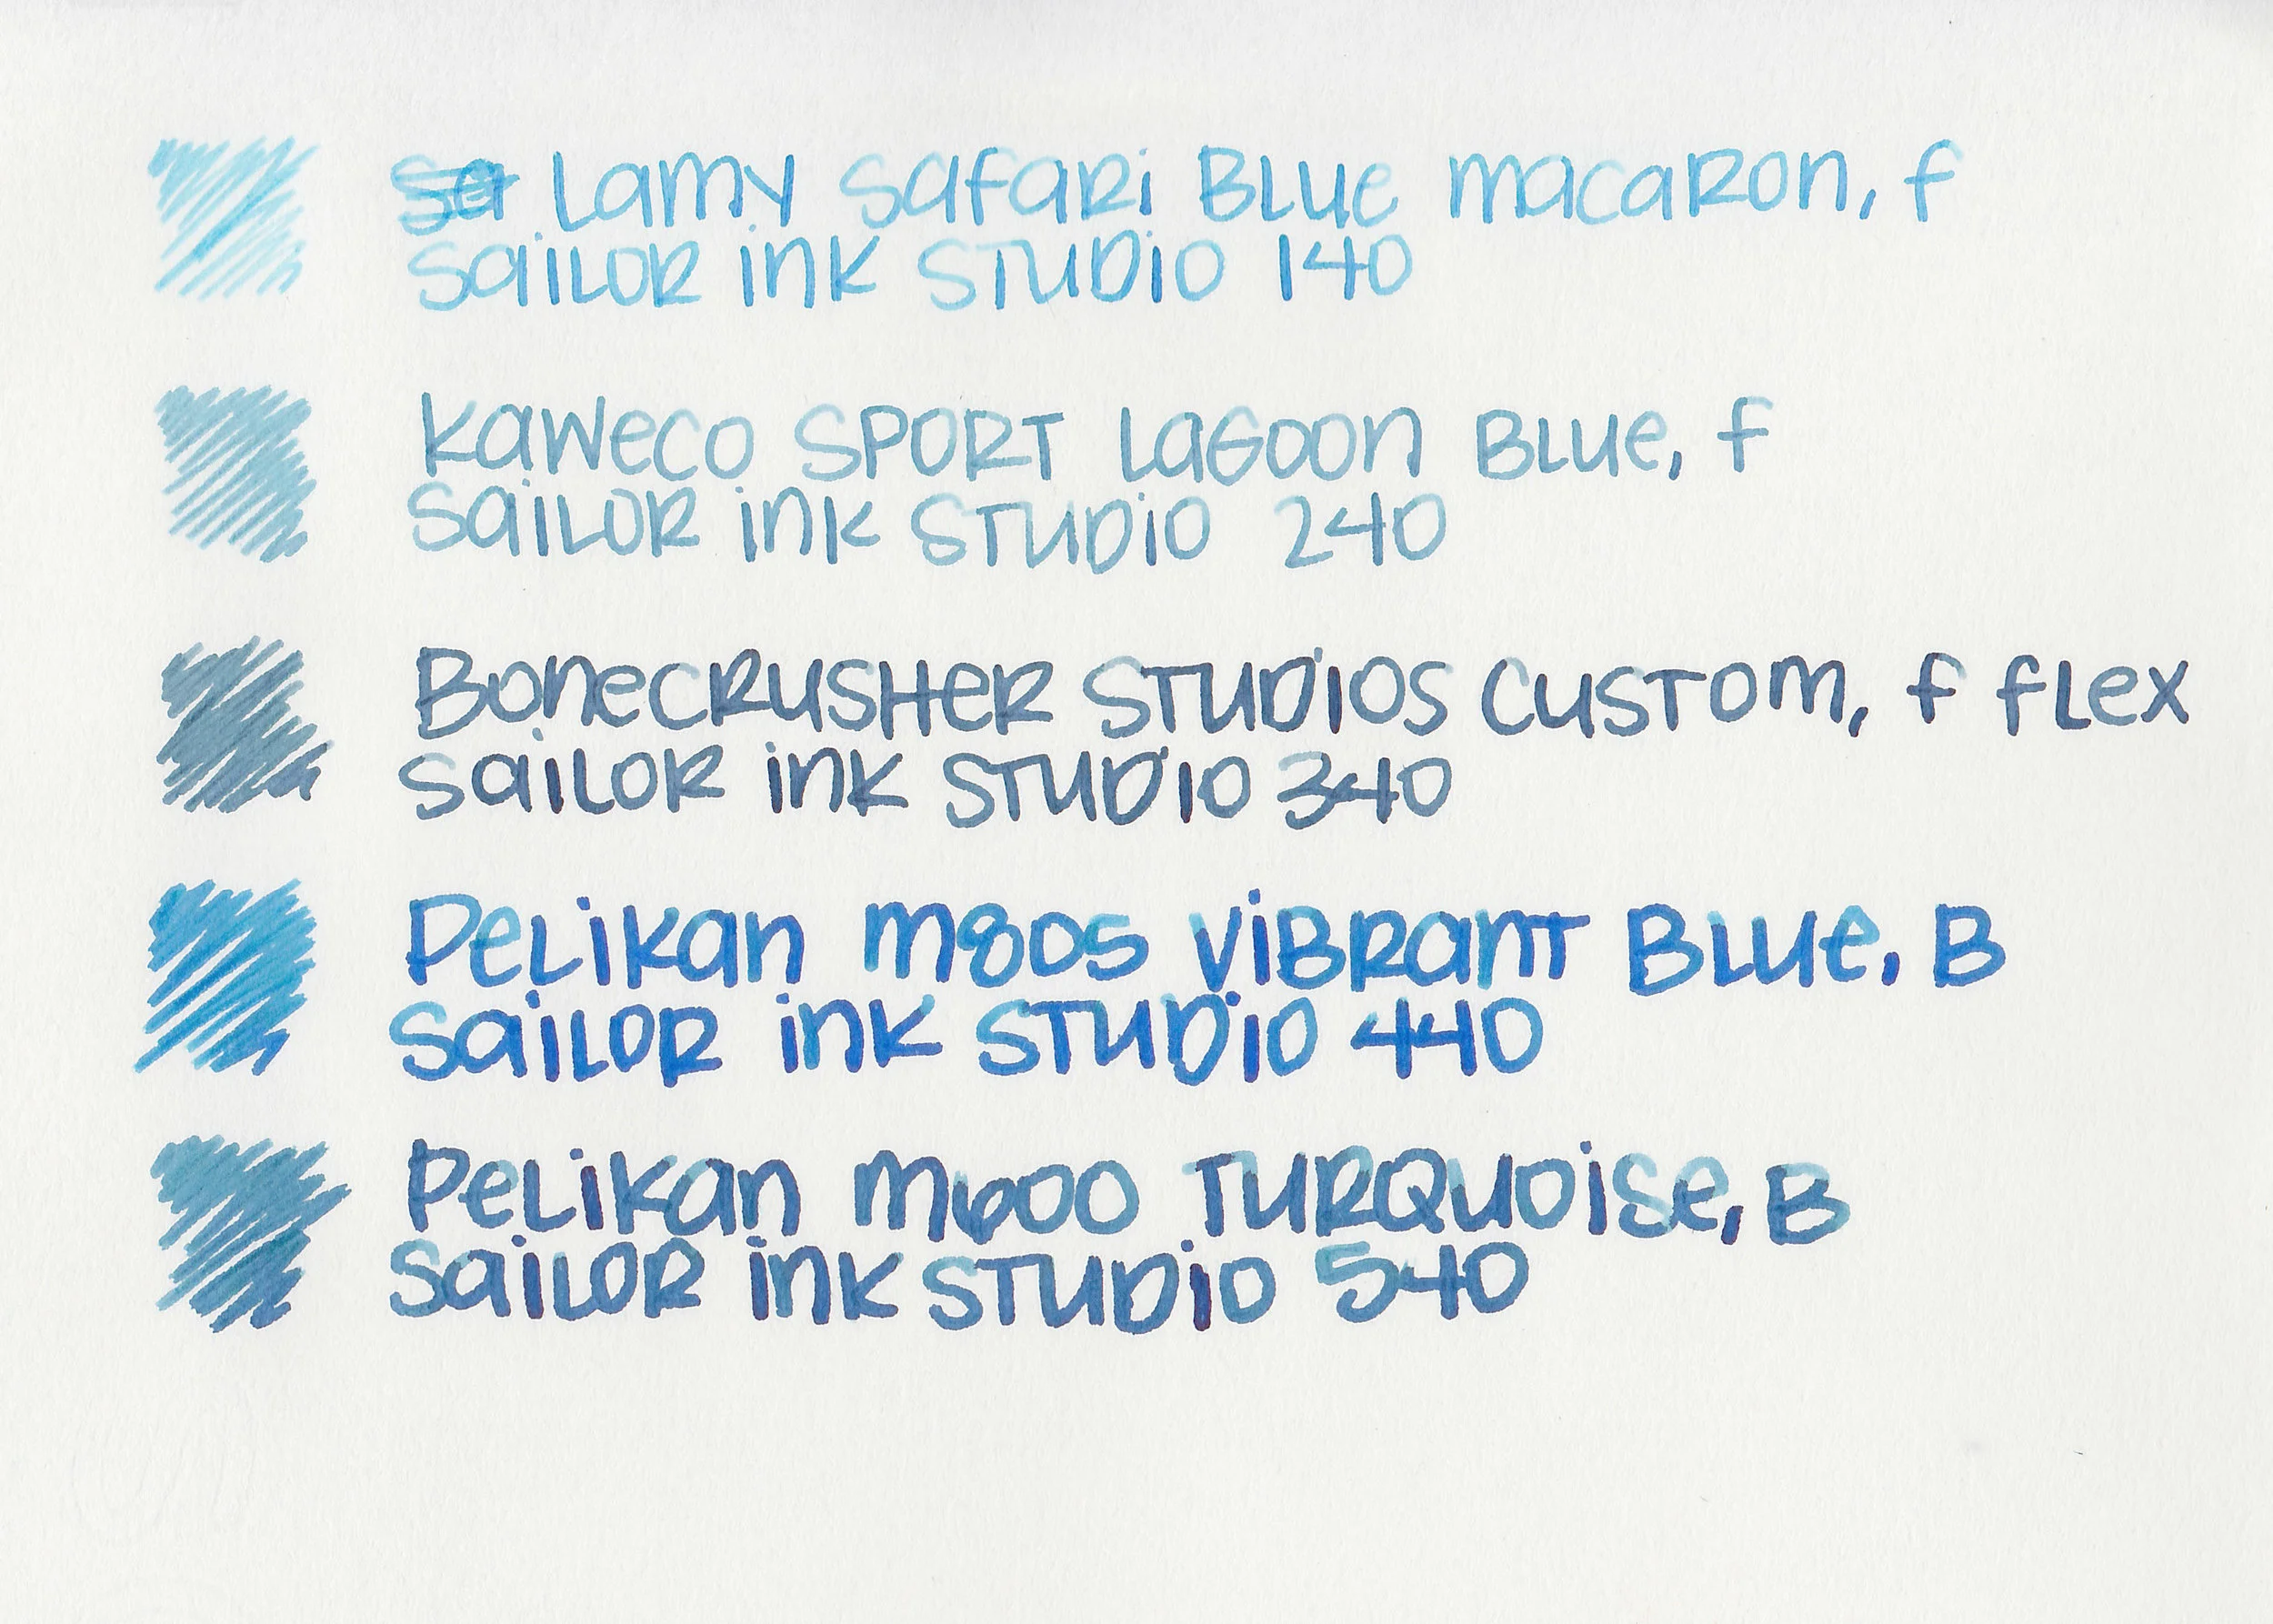 Sa Lamy Safari Blue Macaron, f
Sailor Ink Studio 140
Kaweco Sport Lagoon Blue, f
Sailor Ink Studio 240
Bonecrusher Studios Custom, f flex
Sailor Ink Studio 340
Pelikan M805 Vibrant Blue, B
Sailor Ink Studio 440
Pelikan M600 Turquoise, B
Sailor Ink Studio 540